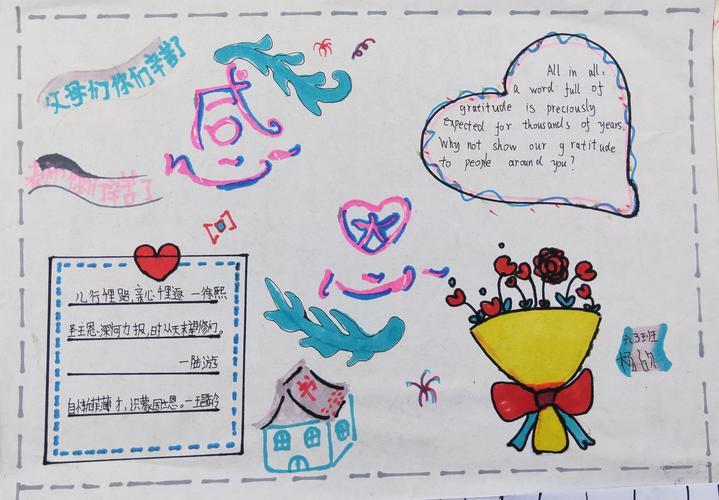 父母们你们辛苦了
老师们你们辛苦了
感
恩
All in all,
a word full of
gratitude is preciously
expected for thousands of years.
Why not show our gratitude
to people around you?
儿行千里路,亲心千里逐 —徐熙
圣主恩深何力报,时从天末望修门。
—陆游
六3班
杨欣